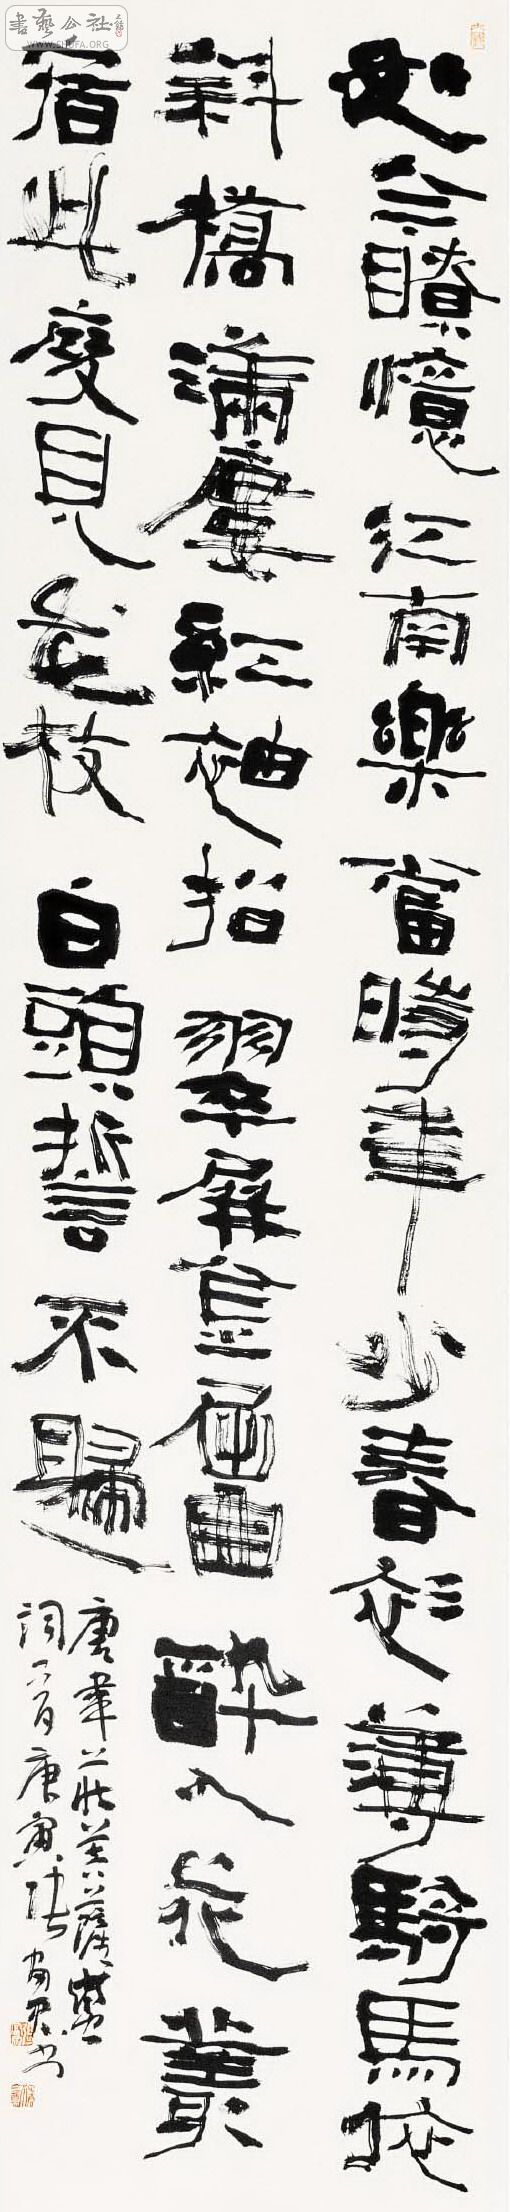 如今瞭憶江南樂當時年少春衫薄騎馬倚
斜橋滿廔紅袖招翠屏金屈曲醉入花叢
宿此度見花枝白頭誓不歸
唐韋莊菩薩蠻
詞一首庚寅張書
書藝公社
WWW.SHUFA.ORG